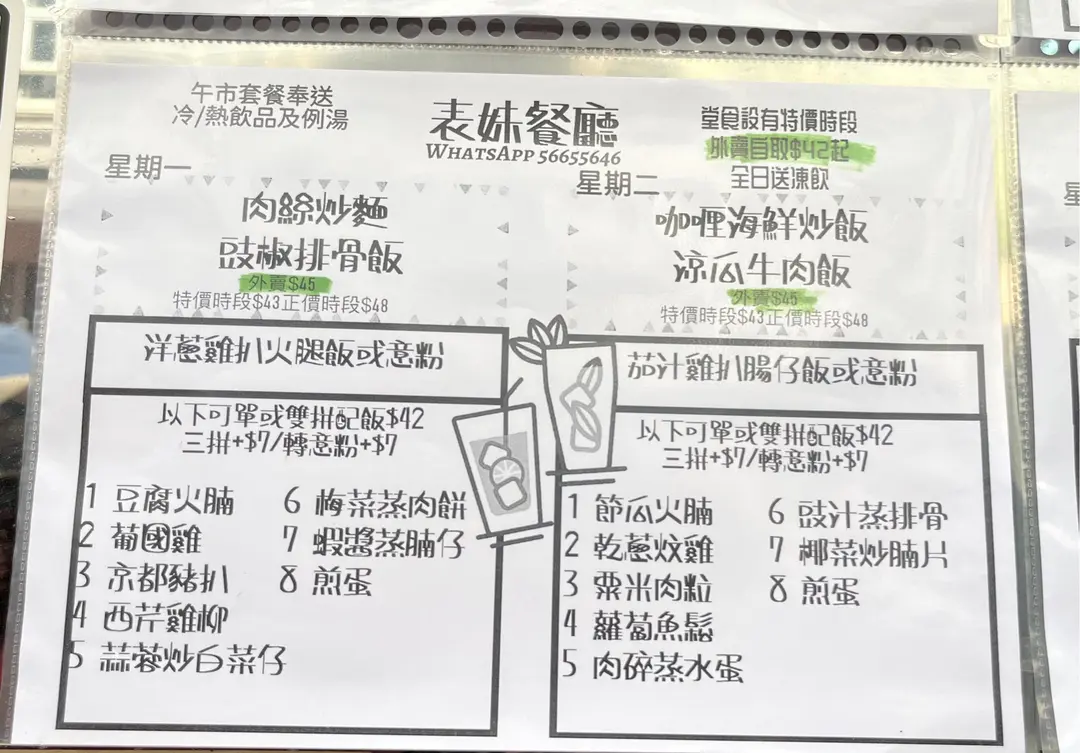 午市套餐奉送
冷/熱飲品及例湯
表妹餐廳
WHATSAPP 56655646
堂食設有特價時段
外賣自取$42起
全日送凍飲
星期一
肉絲炒麵
豉椒排骨飯
外賣$45
特價時段$43正價時段$48
洋蔥雞扒火腿飯或意粉
以下可單或雙拼配飯$42
三拼+$7/轉意粉+$7
1 豆腐火腩
2 葡國雞
3 京都豬扒
4 西芹雞柳
5 蒜蓉炒白菜仔
6 梅菜蒸肉餅
7 蝦醬蒸腩仔
8 煎蛋
星期二
咖喱海鮮炒飯
涼瓜牛肉飯
外賣$45
特價時段$43正價時段$48
茄汁雞扒腸仔飯或意粉
以下可單或雙拼配飯$42
三拼+$7/轉意粉+$7
1 節瓜火腩
2 乾蔥炆雞
3 粟米肉粒
4 蘿蔔魚鬆
5 肉碎蒸水蛋
6 豉汁蒸排骨
7 椰菜炒腩片
8 煎蛋